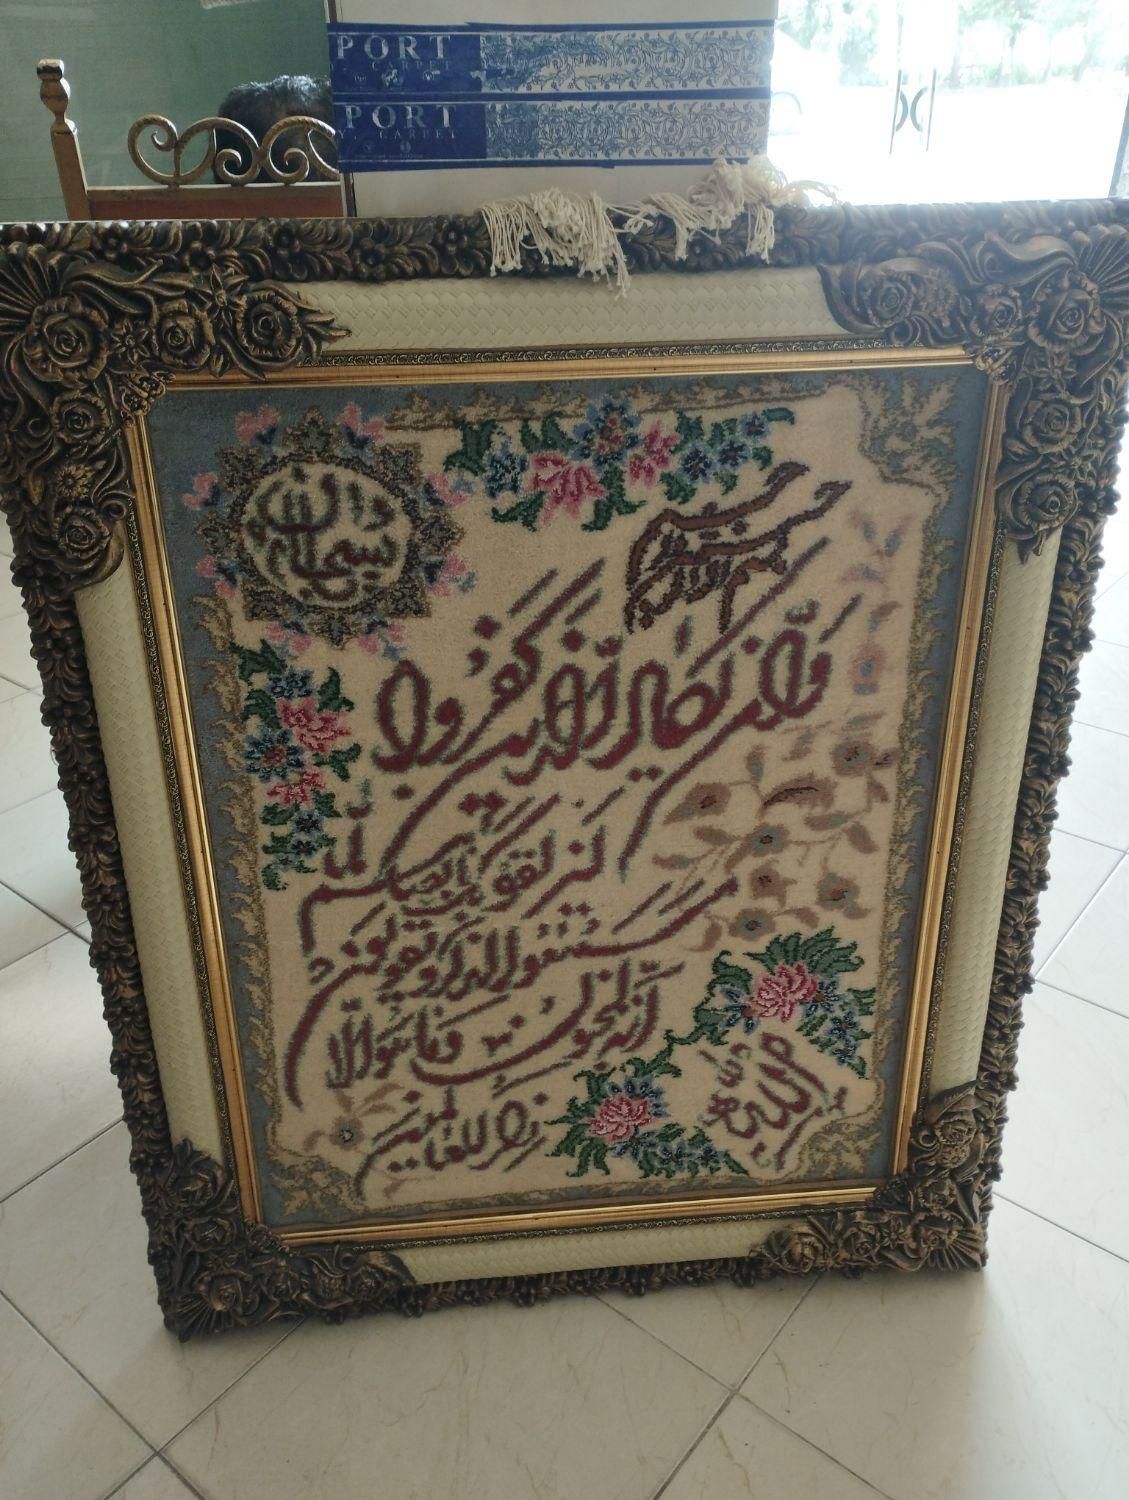 PORT
CARPET
PORT
CARPET
بسم الله
بسم الله الرحمن الرحیم
وان یکاد الذین کفروا
لیزلقونک بابصارهم لما
سمعوا الذکر و یقولون
انه لمجنون و ما هو الا
ذکر للعالمین
صدق الله